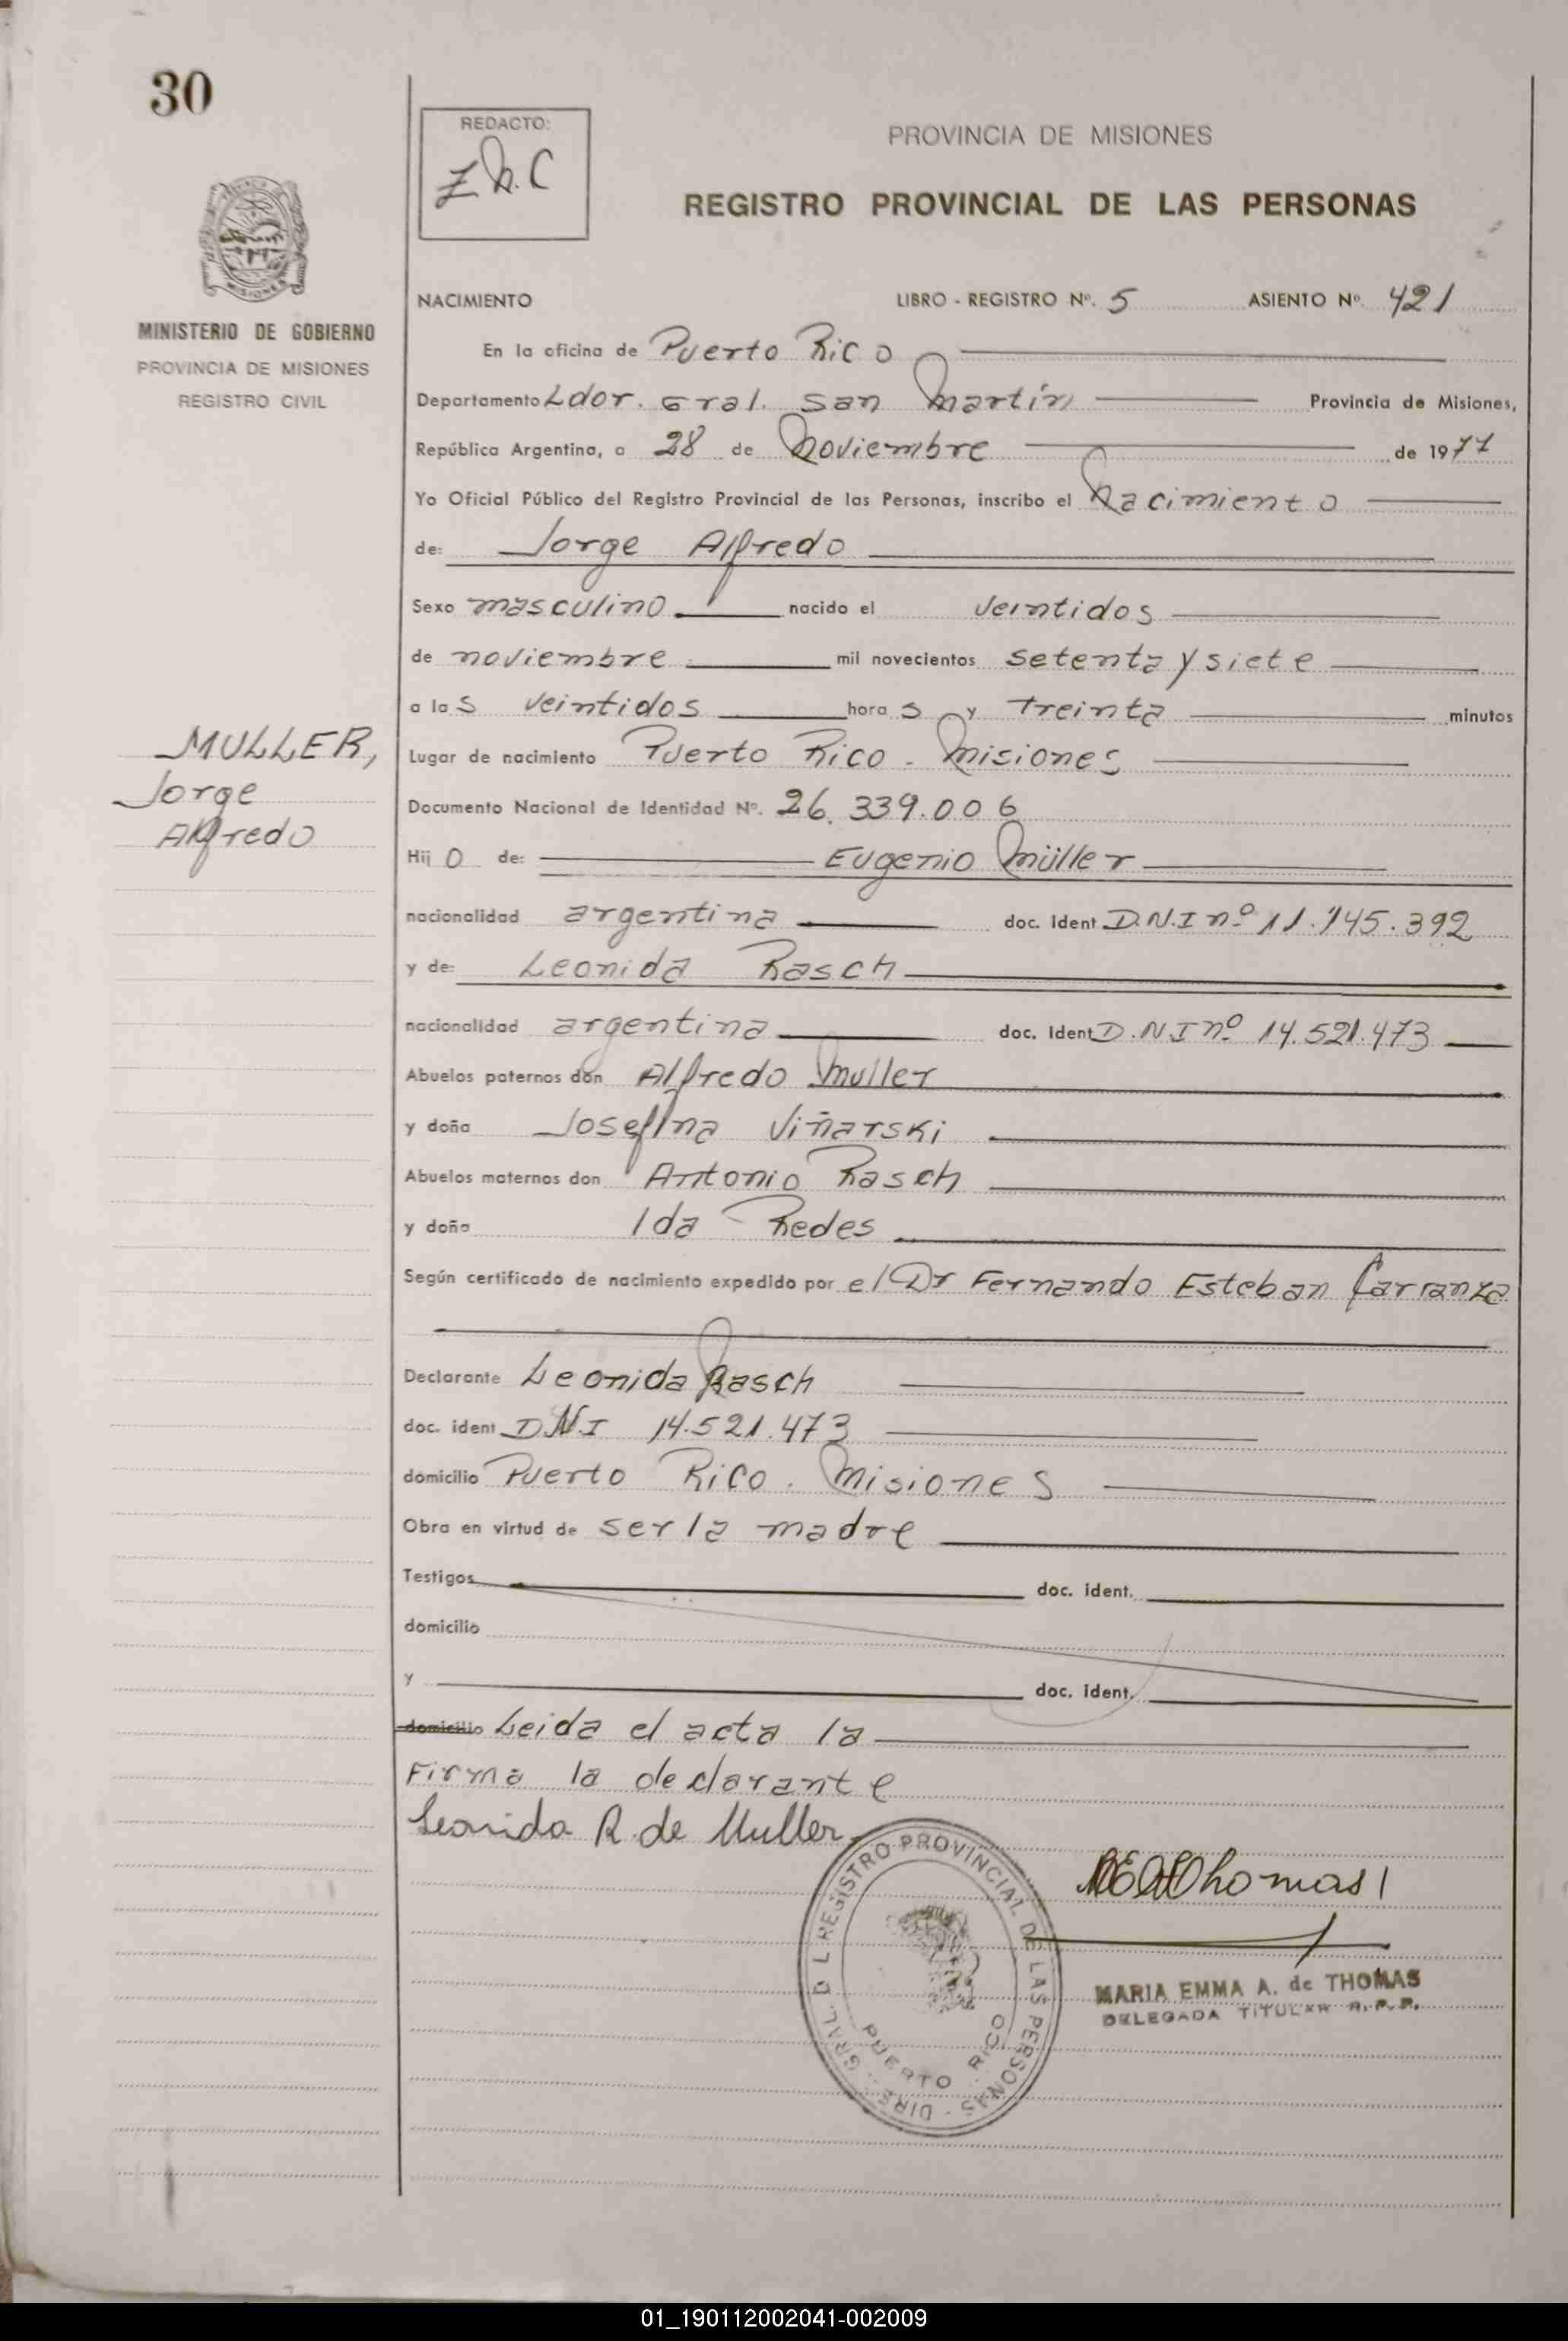 30
REDACTO:
PROVINCIA DE MISIONES
REGISTRO PROVINCIAL DE LAS PERSONAS
MISIONES
MINISTERIO DE GOBIERNO
PROVINCIA DE MISIONES
REGISTRO CIVIL
NACIMIENTO LIBRO - REGISTRO Nº. 5 ASIENTO Nº. 421
En la oficina de Puerto Rico
Departamento Ldor. Gral. San Martín Provincia de Misiones,
República Argentina, a 28 de Noviembre de 1977
Yo Oficial Público del Registro Provincial de las Personas, inscribo el Nacimiento
de: Jorge Alfredo
Sexo masculino nacido el veintidos
de noviembre mil novecientos setenta y siete
a las veintidos horas y treinta minutos
MULLER,
Jorge
Alfredo
Lugar de nacimiento Puerto Rico - Misiones
Documento Nacional de Identidad Nº. 26.339.006
Hijo de: Eugenio Müller
nacionalidad argentina doc. Ident D.N.I nº 11.745.392
y de: Leonida Rasch
nacionalidad argentina doc. Ident D.N.I nº 14.521.473
Abuelos paternos don Alfredo Muller
y doña Josefina Viñarski
Abuelos maternos don Antonio Rasch
y doña Ida Redes
Según certificado de nacimiento expedido por el Dr Fernando Esteban Carranza
Declarante Leonida Rasch
doc. ident D.N.I 14.521.473
domicilio Puerto Rico. Misiones
Obra en virtud de ser la madre
Testigos doc. ident.
domicilio
y doc. ident.
domicilio Leida el acta la
Firma la declarante
Leonida R. de Muller
DIRE. GRAL. D L REGISTRO PROVINCIAL DE LAS PERSONAS
PUERTO RICO
MARIA EMMA A. de THOMAS
DELEGADA TITULAR R.P.P.
01_190112002041-002009